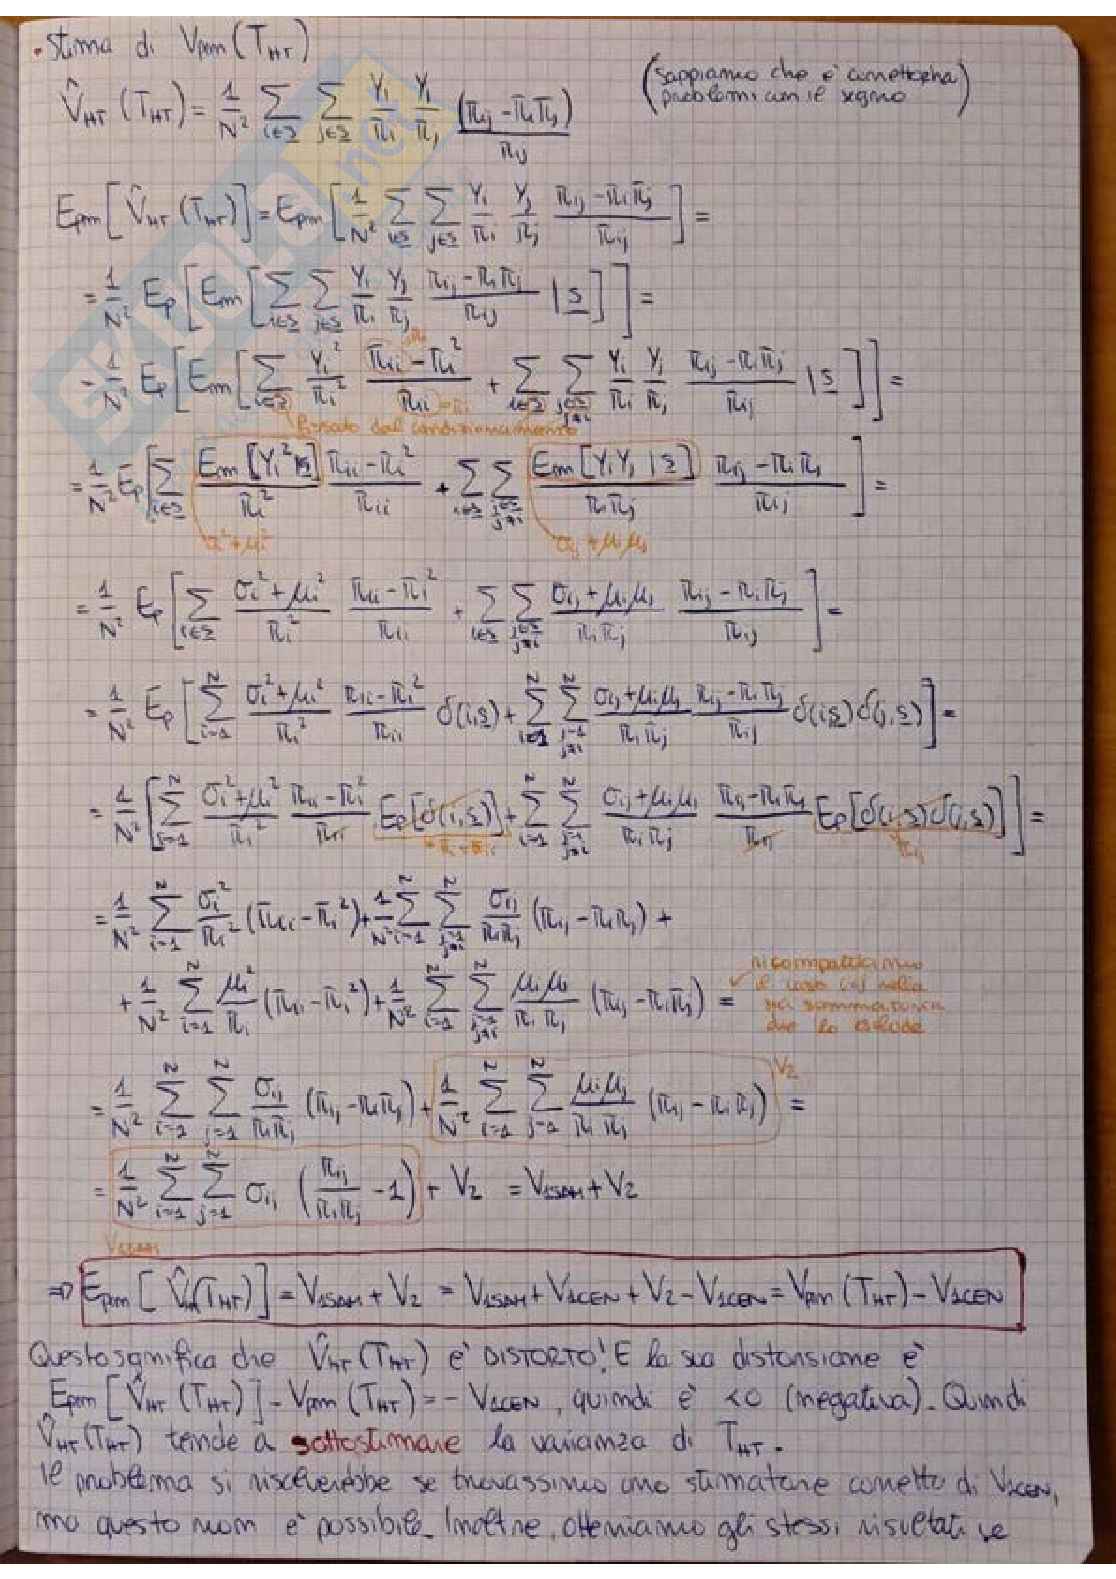 • Stima di Vpm(T_HT)
(Sappiamo che è corretto ma
problemi con il segno)
V̂_HT(T_HT) = 1/N² Σ_{i∈s} Σ_{j∈s} Yi/πi Yj/πj (πij - πiπj)/πij
Epm[V̂_HT(T_HT)] = Epm[1/N² Σ_{i∈s} Σ_{j∈s} Yi/πi Yj/πj (πij - πiπj)/πij] =
= 1/N² Ep[Em[Σ_{i∈s} Σ_{j∈s} Yi/πi Yj/πj (πij - πiπj)/πij | s]] =
= 1/N² Ep[Em[Σ_{i∈s} Yi²/πi² (πii - πi²)/πii + Σ_{i∈s} Σ_{j∈s, j≠i} Yi/πi Yj/πj (πij - πiπj)/πij | s]] =
fissato dal condizionamento
= 1/N² Ep[Σ_{i∈s} Em[Yi²|s]/πi² (πii - πi²)/πii + Σ_{i∈s} Σ_{j∈s, j≠i} Em[YiYj|s]/πiπj (πij - πiπj)/πij] =
σi² + μi² σij + μiμj
= 1/N² Ep[Σ_{i∈s} (σi² + μi²)/πi² (πii - πi²)/πii + Σ_{i∈s} Σ_{j∈s, j≠i} (σij + μiμj)/πiπj (πij - πiπj)/πij] =
= 1/N² Ep[Σ_{i=1}^N (σi² + μi²)/πi² (πii - πi²)/πii δ(i,s) + Σ_{i=1}^N Σ_{j=1, j≠i}^N (σij + μiμj)/πiπj (πij - πiπj)/πij δ(i,s)δ(j,s)] =
= 1/N² [Σ_{i=1}^N (σi² + μi²)/πi² (πii - πi²)/πii Ep[δ(i,s)] + Σ_{i=1}^N Σ_{j=1, j≠i}^N (σij + μiμj)/πiπj (πij - πiπj)/πij Ep[δ(i,s)δ(j,s)]] =
πi = πii πij
= 1/N² Σ_{i=1}^N σi²/πi² (πii - πi²) + 1/N² Σ_{i=1}^N Σ_{j=1, j≠i}^N σij/πiπj (πij - πiπj) +
+ 1/N² Σ_{i=1}^N μi²/πi (πii - πi²) + 1/N² Σ_{i=1}^N Σ_{j=1, j≠i}^N μiμj/πiπj (πij - πiπj) =
ricompattiamo
il caso i=j nella
sommatoria
che lo esclude
= 1/N² Σ_{i=1}^N Σ_{j=1}^N σij/πiπj (πij - πiπj) + 1/N² Σ_{i=1}^N Σ_{j=1}^N μiμj/πiπj (πij - πiπj) =
V2
= 1/N² Σ_{i=1}^N Σ_{j=1}^N σij (πij/πiπj - 1) + V2 = V1SAM + V2
V1SAM
⇒ Epm[V̂(T_HT)] = V1SAM + V2 = V1SAM + V1CEN + V2 - V1CEN = Vpm(T_HT) - V1CEN
Questo significa che V̂_HT(T_HT) è DISTORTO! E la sua distorsione è
Epm[V̂_HT(T_HT)] - Vpm(T_HT) = - V1CEN, quindi è <0 (negativa). Quindi
V̂_HT(T_HT) tende a sottostimare la varianza di T_HT.
Il problema si risolverebbe se trovassimo uno stimatore corretto di V1CEN,
ma questo non è possibile. Inoltre, otteniamo gli stessi risultati se